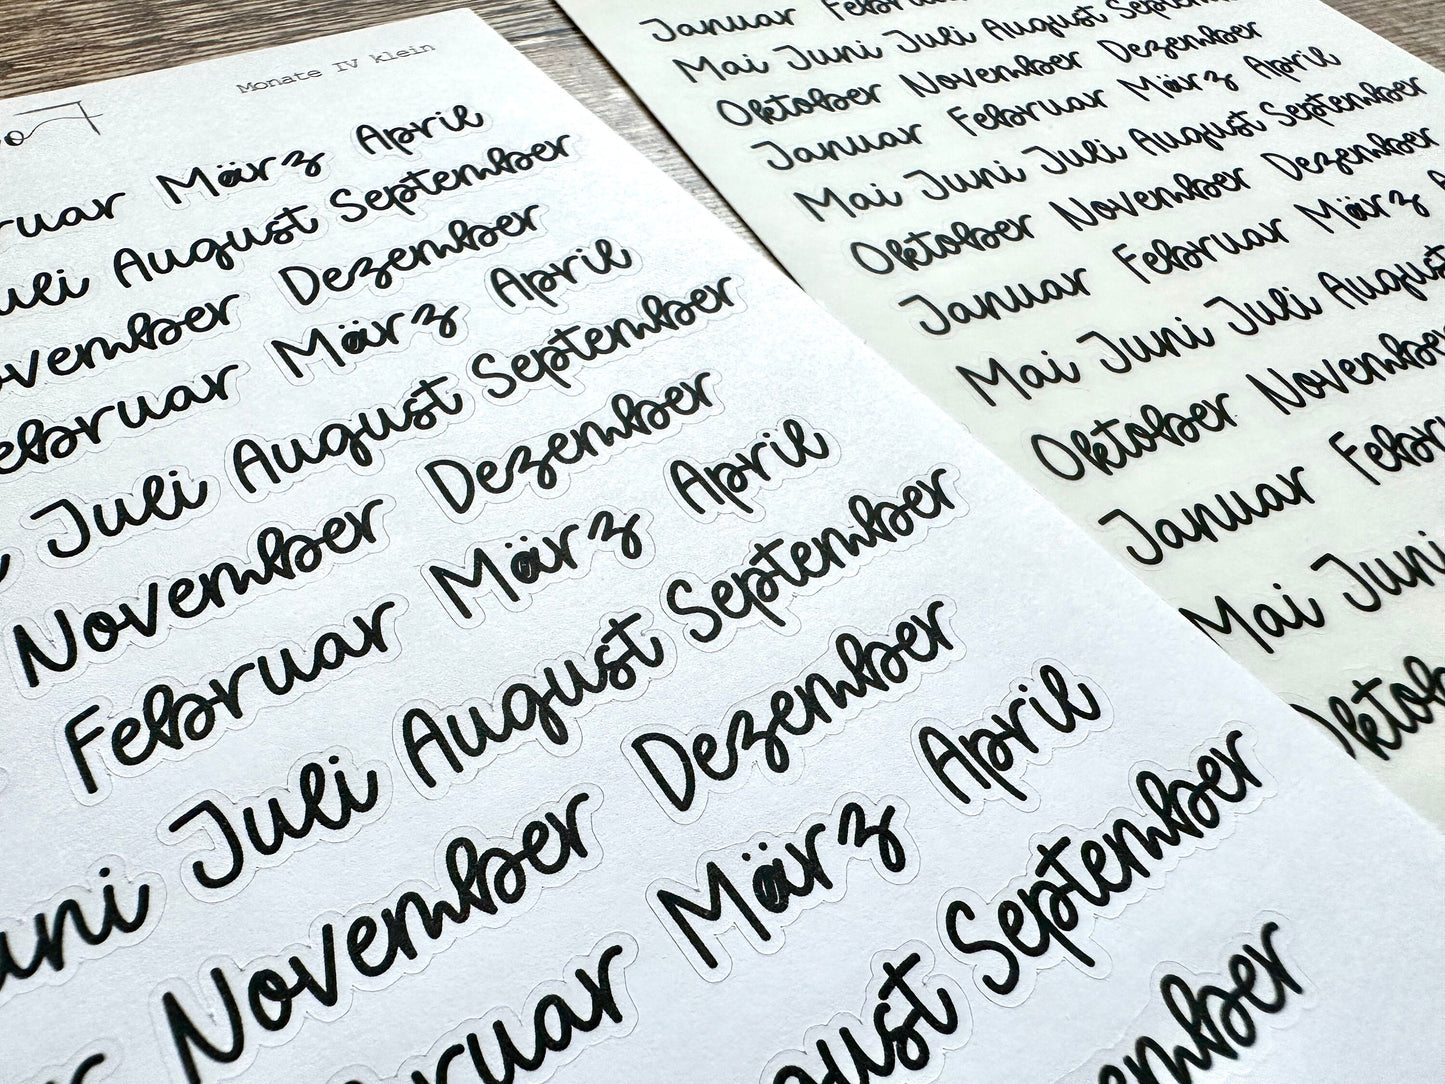 Monate IV klein
März April
Juli August September
November Dezember
Februar März April
Juli August September
November Dezember
Februar März April
Juni Juli August September
November Dezember
März April
August September
Januar
Mai Juni Juli August September
Oktober November Dezember
Januar Februar März April
Mai Juni Juli August September
Oktober November Dezember
Januar Februar März
Mai Juni Juli August
Oktober November
Januar
Mai Juni
Oktober